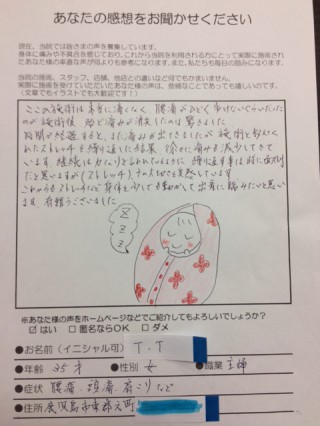 あなたの感想をお聞かせください
現在、当院では皆さまの声を募集しています。
身体に痛みや不具合を感じており、これから当院を利用される方にとって実際に施術され
たあなた様の率直な声が何よりも参考になります。また、私たちも毎日の励みになります。
当院の施術、スタッフ、店舗、他店との違いなど何でもかまいません。
実際に施術を受けていただいたあなた様の声は、些細なことであっても嬉しいのです。
(文章でもイラストでも大歓迎です!)
ここの施術は本当に痛くなく 腰痛がひどく歩けないぐらいだった
のが施術後 殆ど痛みが消失したのには驚きました
時間が経過すると、また痛みが出てきましたが 施術と教えてく
れたストレッチを繰り返した結果 徐々に痛みも減少してきて
います。継続は力なりと言われているように 繰り返す事は時に面倒
だと思いますが(ストレッチ)、その大切さを実感しています
これからもストレッチなど身体を少しでも動かして出産に臨みたいと思い
ます。有難うございました
Z
Z
Z
※あなた様の声をホームページなどでご紹介してもよろしいでしょうか?
☑ はい □ 匿名ならOK □ ダメ
●お名前(イニシャル可) T.T
●年齢 35才 ●性別 女 ●職業 主婦
●症状 腰痛、頭痛、肩こりなど
●住所 鹿児島市東郡元町